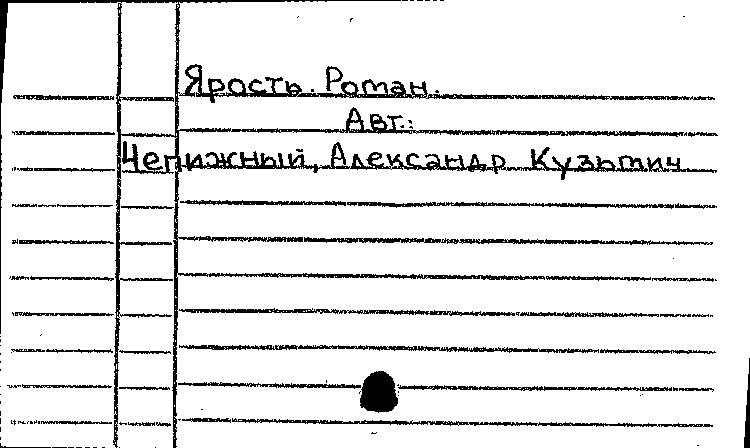 Ярость. Роман.
Авт.:
Чепижный, Александр Кузьмич